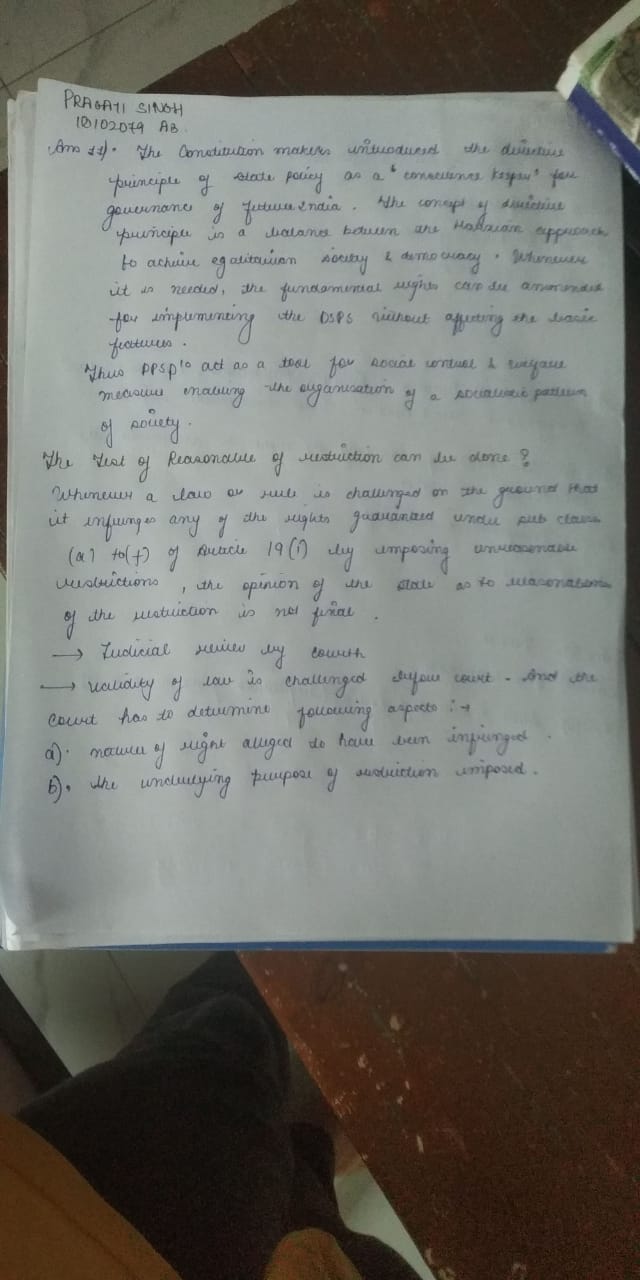 PRAGATI SINGH
18102079 A3.
Ans 11). The Constitution makers introduced the directive
principle of state policy as a "conscience keeper" for
governance of future India. The concept of directive
principle is a balance between the Marxian approach
to achieve egalitarian society & democracy. Whenever
it is needed, the fundamental rights can be ammended
for implementing the DSPS without affecting the basic
features.
Thus DPSP's act as a tool for social control & welfare
measure enabling the organisation of a socialistic pattern
of society.
The Test of Reasonable of restriction can be done?
Whenever a law or rule is challenged on the ground that
it infringes any of the rights guaranteed under sub clause
(a) to (f) of Article 19(1) by imposing unreasonable
restrictions, the opinion of the state as to reasonableness
of the restriction is not final.
→ Judicial review by courth
→ validity of law is challenged before court. And the
court has to determine following aspects :→
a). nature of right alleged to have been infringed.
b). the underlying purpose of restriction imposed.